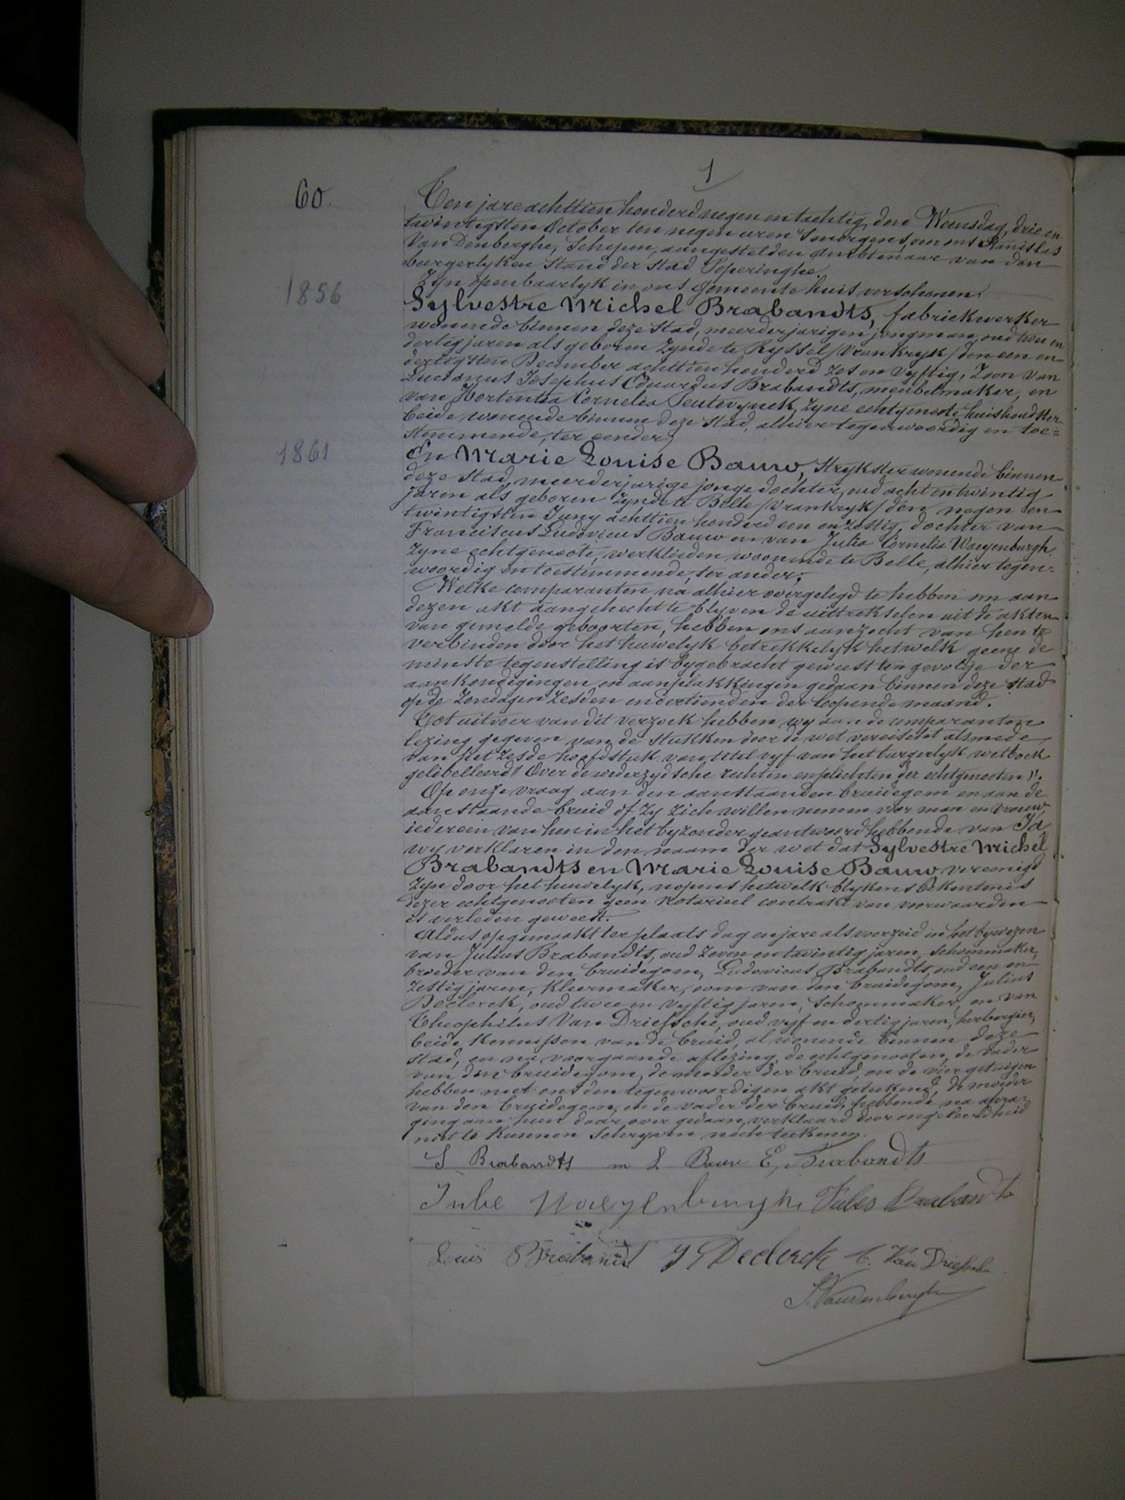 1
60.
Ten jare achttien honderd negen en tachtig, den Woensdag, drie en
twintigsten October ten negen uren 's morgens, voor ons Stanislas
Van Denberghe, Schepen, aangestelden ambtenaar van den
burgerlyken Stand der stad Poperinghe
Zyn openbaarlyk in ons gemeente huis verschenen:
1856
Sylvestre Michel Brabandts, fabriekwerker
wonende binnen deze stad, meerderjarigen jongman, oud twee en
dertig jaren als geboren zynde te Ryssel /Vrankryk/ den een en
dertigsten December achttien honderd zes en vyftig, Zoon van
Josephus Eduardus Brabandts, meubelmaker, en
van Hortentia Cornelia zyne echtgenoote, huishoudster
beide wonende binnen deze stad, alhier tegenwoordig en toe=
stemmende, ter eender;
1861
En Marie Louise Bauw, Strykster wonende binnen
deze stad, meerderjarige jonge dochter, oud acht en twintig
jaren als geboren zynde te Belle /Vrankryk/ den negen en
twintigsten Juny achttien honderd een en zestig, dochter van
Franciscus Ludovicus Bauw en van Julia Cornelia Waeyenburgh
zyne echtgenoote, werklieden wonende te Belle, alhier tegen=
woordig en toestemmende, ter ander;
Welke comparanten na alhier overgelegd te hebben om aan
dezen akt aangehecht te blyven de uittrekselen uit de akten
van gemelde geboorten, hebben ons aanzocht van hen te
verbinden door het huwelyk betrekkelyk hetwelk geene de
minste tegenstelling is bygebracht geweest ten gevolge der
aankondigingen en aanplakkingen gedaan binnen deze stad
op de Zondagen zesden en dertienden der loopende maand.
Tot uitvoer van dit verzoek hebben wy aan de comparanten
lezing gegeven van de stukken door de wet vereischt alsmede
van het zesde hoofdstuk van titel vyf van het burgerlyk wetboek
gelibelleerd "Over de wederzydsche rechten en plichten der echtgenooten".
Op onze vraag aan den aanstaanden bruidegom en aan de
aanstaande bruid of zy zich willen nemen voor man en vrouw
iedereen van hen in het byzonder geantwoord hebbende van Ja
wy verklaren in den naam der wet dat Sylvestre Michel
Brabandts en Marie Louise Bauw vereenigd
zyn door het huwelyk, nopens hetwelk blykens bekentenis
dezer echtgenooten geen notarieel contrakt van voorwaarden
is verleden geweest.
Aldus opgemaakt ter plaats dag en jare als voorzeid in het bywezen
van Julius Brabandts, oud zeven en twintig jaren, schoenmaker,
broeder van den bruidegom, Ludovicus Brabandts, oud een en
zestig jaren, kleermaker, oom van den bruidegom, Julius
Declerck, oud twee en vyftig jaren, schoenmaker, en van
Theophilus Van Driessche, oud vyf en dertig jaren, herbergier,
beide kennissen van de bruid, al wonende binnen deze
stad, en na voorgaande aflezing, de echtgenooten, de vader
van den bruidegom, de moeder der bruid en de vier getuigen
hebben met ons den tegenwoordigen akt geteekend, de moeder
van den bruidegom, en de vader der bruid hebbende na afvra=
ging aan hun daar over gedaan, verklaard door ongeleerdheid
niet te kunnen schryven noch teekenen.
S Brabandts m L Bauw E, Brabandts
Julie Waeyenburgh Jules Brabandts
Louis Brabandt J Declerck T. Van Driessche
S. Vandenberghe